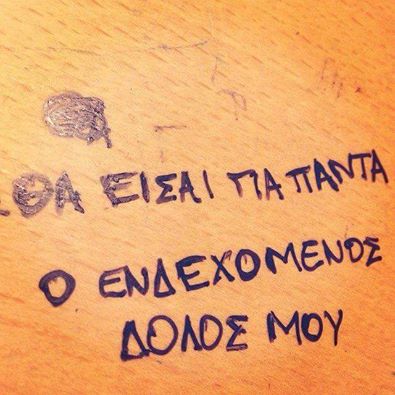 .ΘΑ ΕΙΣΑΙ ΓΙΑ ΠΑΝΤΑ
Ο ΕΝΔΕΧΟΜΕΝΟΣ
ΔΟΛΟΣ ΜΟΥ